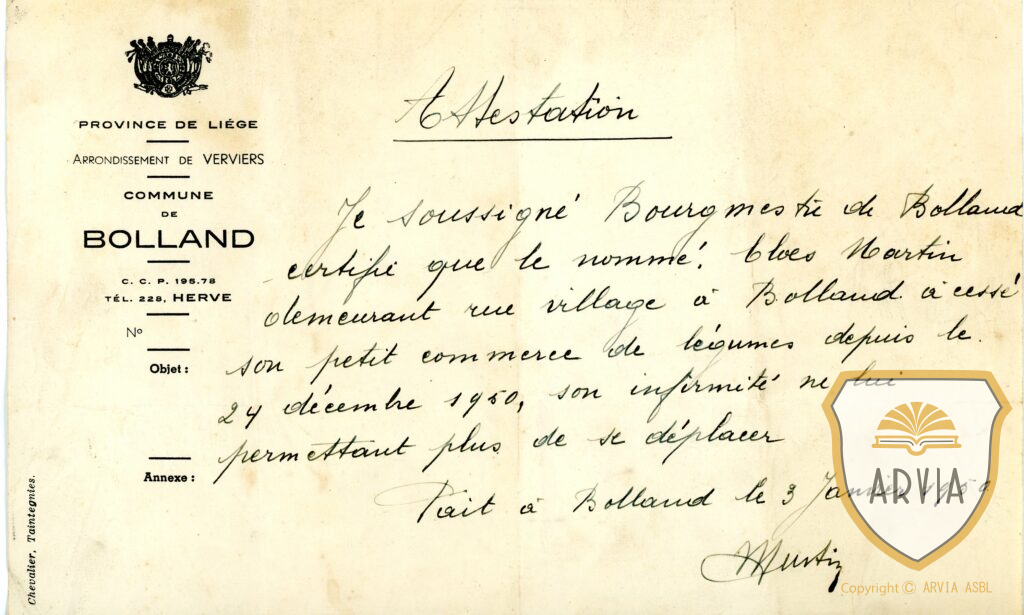 PROVINCE DE LIÉGE
ARRONDISSEMENT DE VERVIERS
COMMUNE
DE
BOLLAND
C. C. P. 195.78
TÉL. 228, HERVE
Nº
Objet :
Annexe :
Chevalier, Taintegnies.
Attestation
Je soussigné Bourgmestre de Bolland
certifie que le nommé. Cloes Martin
demeurant rue village à Bolland à cessé
son petit commerce de légumes depuis le
24 décembre 1950, son infirmité ne lui
permettant plus de se déplacer
Fait à Bolland le 3 Janvier
ARVIA
Copyright © ARVIA ASBL